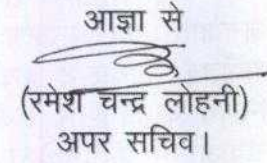 आज्ञा से
(रमेश चन्द्र लोहनी)
अपर सचिव।